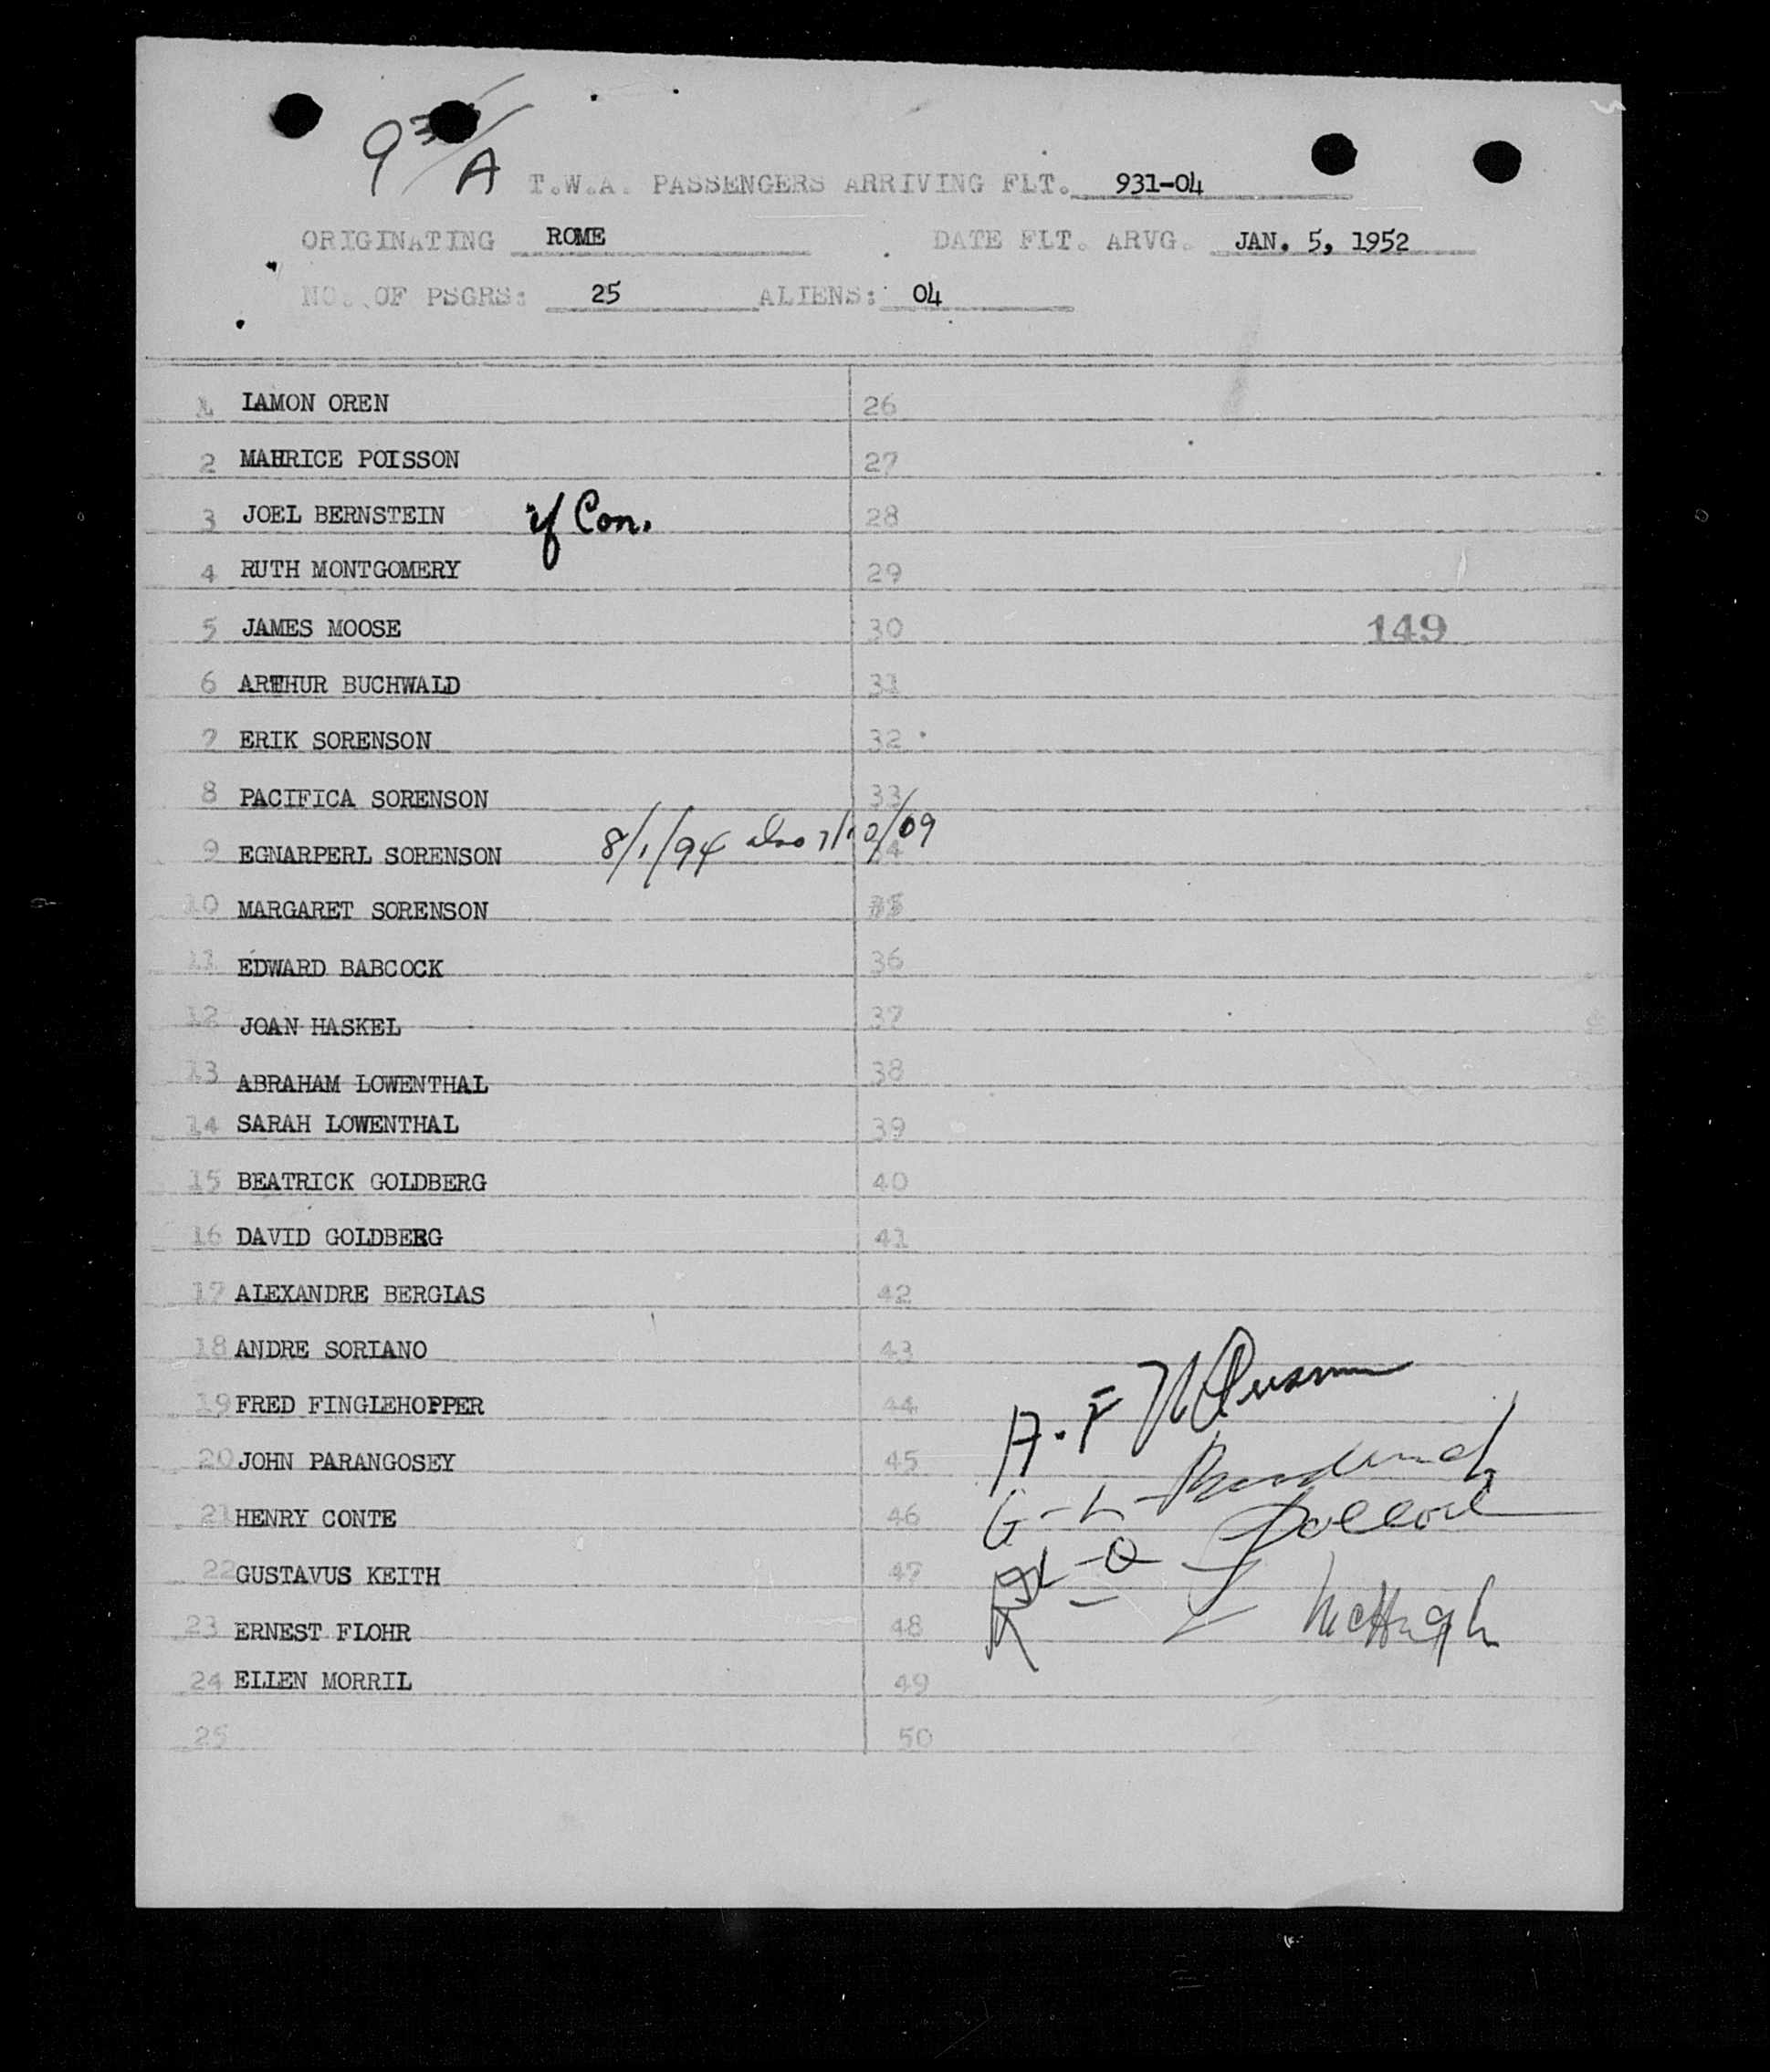 9 A T.W.A. PASSENGERS ARRIVING FLT. 931-04
ORIGINATING ROME DATE FLT. ARVG. JAN. 5, 1952
NO. OF PSGRS: 25 ALIENS: 04
1 LAMON OREN 26
2 MAURICE POISSON 27
3 JOEL BERNSTEIN if Con. 28
4 RUTH MONTGOMERY 29
5 JAMES MOOSE 30 149
6 ARTHUR BUCHWALD 31
7 ERIK SORENSON 32
8 PACIFICA SORENSON 33
9 EGNARPERL SORENSON 8/1/94 also 7/10/09 34
10 MARGARET SORENSON 35
11 EDWARD BABCOCK 36
12 JOAN HASKEL 37
13 ABRAHAM LOWENTHAL 38
14 SARAH LOWENTHAL 39
15 BEATRICK GOLDBERG 40
16 DAVID GOLDBERG 41
17 ALEXANDRE BERGLAS 42
18 ANDRE SORIANO 43
19 FRED FINGLEHOPPER 44
20 JOHN PARANGOSEY 45
21 HENRY CONTE 46
22 GUSTAVUS KEITH 47
23 ERNEST FLOHR 48
24 ELLEN MORRIL 49
25 50
A-F
G-L
R-Z McHugh